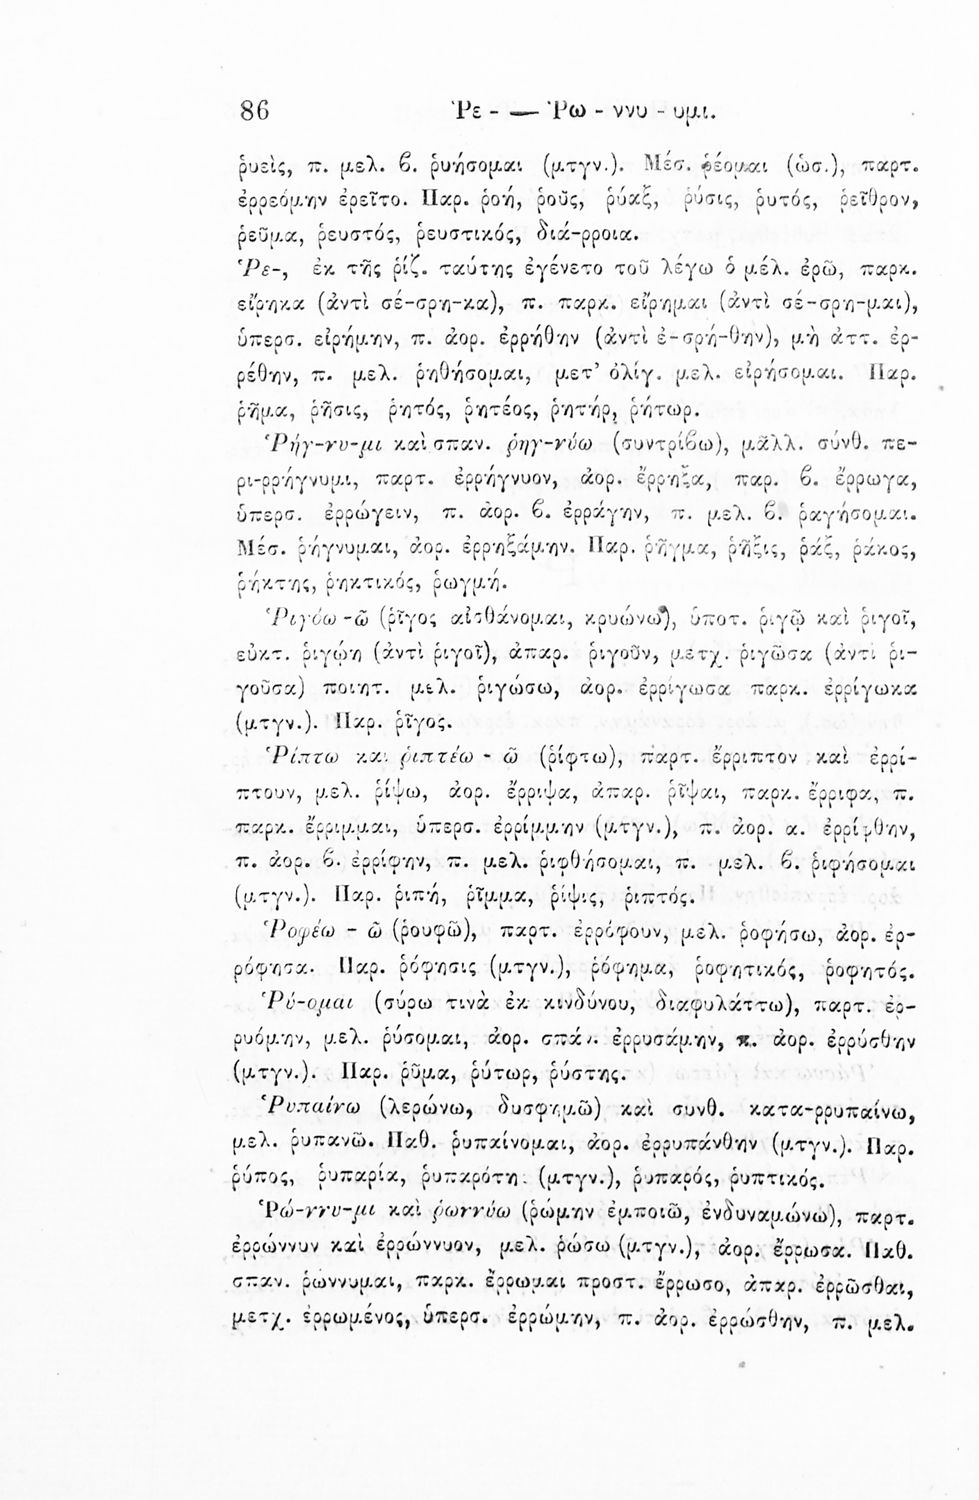 86 Ῥε - — Ῥω - ννυ - υμι.
ῥυεὶς, π. μελ. β. ῥυήσομαι (μτγν.). Μέσ. ῥέομαι (ὡσ.), παρτ.
ἐρρεόμην ἐρεῖτο. Παρ. ῥοή, ῥοῦς, ῥύαξ, ῥύσις, ῥυτός, ῥεῖθρον,
ῥεῦμα, ῥευστός, ῥευστικός, διά-ρροια.
Ῥε-, ἐκ τῆς ῥίζ. ταύτης ἐγένετο τοῦ λέγω ὁ μέλ. ἐρῶ, παρκ.
εἴρηκα (ἀντὶ σέ-σρη-κα), π. παρκ. εἴρημαι (ἀντὶ σέ-σρη-μαι),
ὑπερσ. εἰρήμην, π. ἀορ. ἐρρήθην (ἀντὶ ἐ-σρή-θην), μὴ ἀττ. ἐρ-
ρέθην, π. μελ. ῥηθήσομαι, μετ’ ὀλίγ. μελ. εἰρήσομαι. Παρ.
ῥῆμα, ῥῆσις, ῥητός, ῥητέος, ῥητήρ, ῥήτωρ.
Ῥήγ-νυ-μι καὶ σπαν. ῥηγ-νύω (συντρίβω), μᾶλλ. σύνθ. πε-
ρι-ρρήγνυμι, παρτ. ἐρρήγνυον, ἀορ. ἔρρηξα, παρ. β. ἔρρωγα,
ὑπερσ. ἐρρώγειν, π. ἀορ. β. ἐρράγην, π. μελ. β. ῥαγήσομαι.
Μέσ. ῥήγνυμαι, ἀορ. ἐρρηξάμην. Παρ. ῥῆγμα, ῥῆξις, ῥάξ, ῥάκος,
ῥήκτης, ῥηκτικός, ῥωγμή.
Ῥιγόω -ῶ (ῥῖγος αἰσθάνομαι, κρυώνω), ὑποτ. ῥιγῷ καὶ ῥιγοῖ,
εὐκτ. ῥιγῴη (ἀντὶ ῥιγοῖ), ἀπαρ. ῥιγοῦν, μετχ. ῥιγῶσα (ἀντὶ ῥι-
γοῦσα) ποιητ. μελ. ῥιγώσω, ἀορ. ἐρρίγωσα παρκ. ἐρρίγωκα
(μτγν.). Παρ. ῥῖγος.
Ῥίπτω καὶ ῥιπτέω - ῶ (ῥίφτω), παρτ. ἔρριπτον καὶ ἐρρί-
πτουν, μελ. ῥίψω, ἀορ. ἔρριψα, ἀπαρ. ῥῖψαι, παρκ. ἔρριφα, π.
παρκ. ἔρριμμαι, ὑπερσ. ἐρρίμμην (μτγν.), π. ἀορ. α. ἐρρίφθην,
π. ἀορ. β. ἐρρίφην, π. μελ. ῥιφθήσομαι, π. μελ. β. ῥιφήσομαι
(μτγν.). Παρ. ῥιπή, ῥῖμμα, ῥίψις, ῥιπτός.
Ῥοφέω - ῶ (ῥουφῶ), παρτ. ἐρρόφουν, μελ. ῥοφήσω, ἀορ. ἐρ-
ρόφησα. Παρ. ῥόφησις (μτγν.), ῥόφημα, ῥοφητικός, ῥοφητός.
Ῥύ-ομαι (σύρω τινὰ ἐκ κινδύνου, διαφυλάττω), παρτ. ἐρ-
ρυόμην, μελ. ῥύσομαι, ἀορ. σπάν. ἐρρυσάμην, π. ἀορ. ἐρρύσθην
(μτγν.). Παρ. ῥῦμα, ῥύτωρ, ῥύστης.
Ῥυπαίνω (λερώνω, δυσφημῶ) καὶ συνθ. κατα-ρρυπαίνω,
μελ. ῥυπανῶ. Παθ. ῥυπαίνομαι, ἀορ. ἐρρυπάνθην (μτγν.). Παρ.
ῥύπος, ῥυπαρία, ῥυπαρότης (μτγν.), ῥυπαρός, ῥυπτικός.
Ῥώ-ννυ-μι καὶ ῥωννύω (ῥώμην ἐμποιῶ, ἐνδυναμώνω), παρτ.
ἐρρώννυν καὶ ἐρρώννυον, μελ. ῥώσω (μτγν.), ἀορ. ἔρρωσα. Παθ.
σπαν. ῥώννυμαι, παρκ. ἔρρωμαι προστ. ἔρρωσο, ἀπαρ. ἐρρῶσθαι,
μετχ. ἐρρωμένος, ὑπερσ. ἐρρώμην, π. ἀορ. ἐρρώσθην, π. μελ.